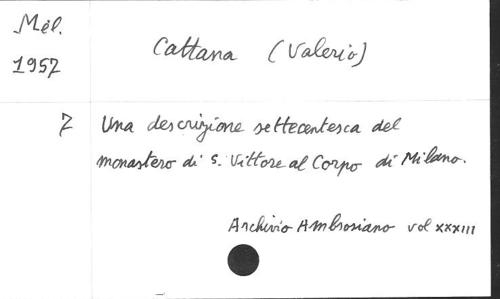 Mél.
1957
Cattana (Valerio)
7 Una descrizione settecentesca del
monastero di S. Vittore al Corpo di Milano.
Archivio Ambrosiano vol XXXIII